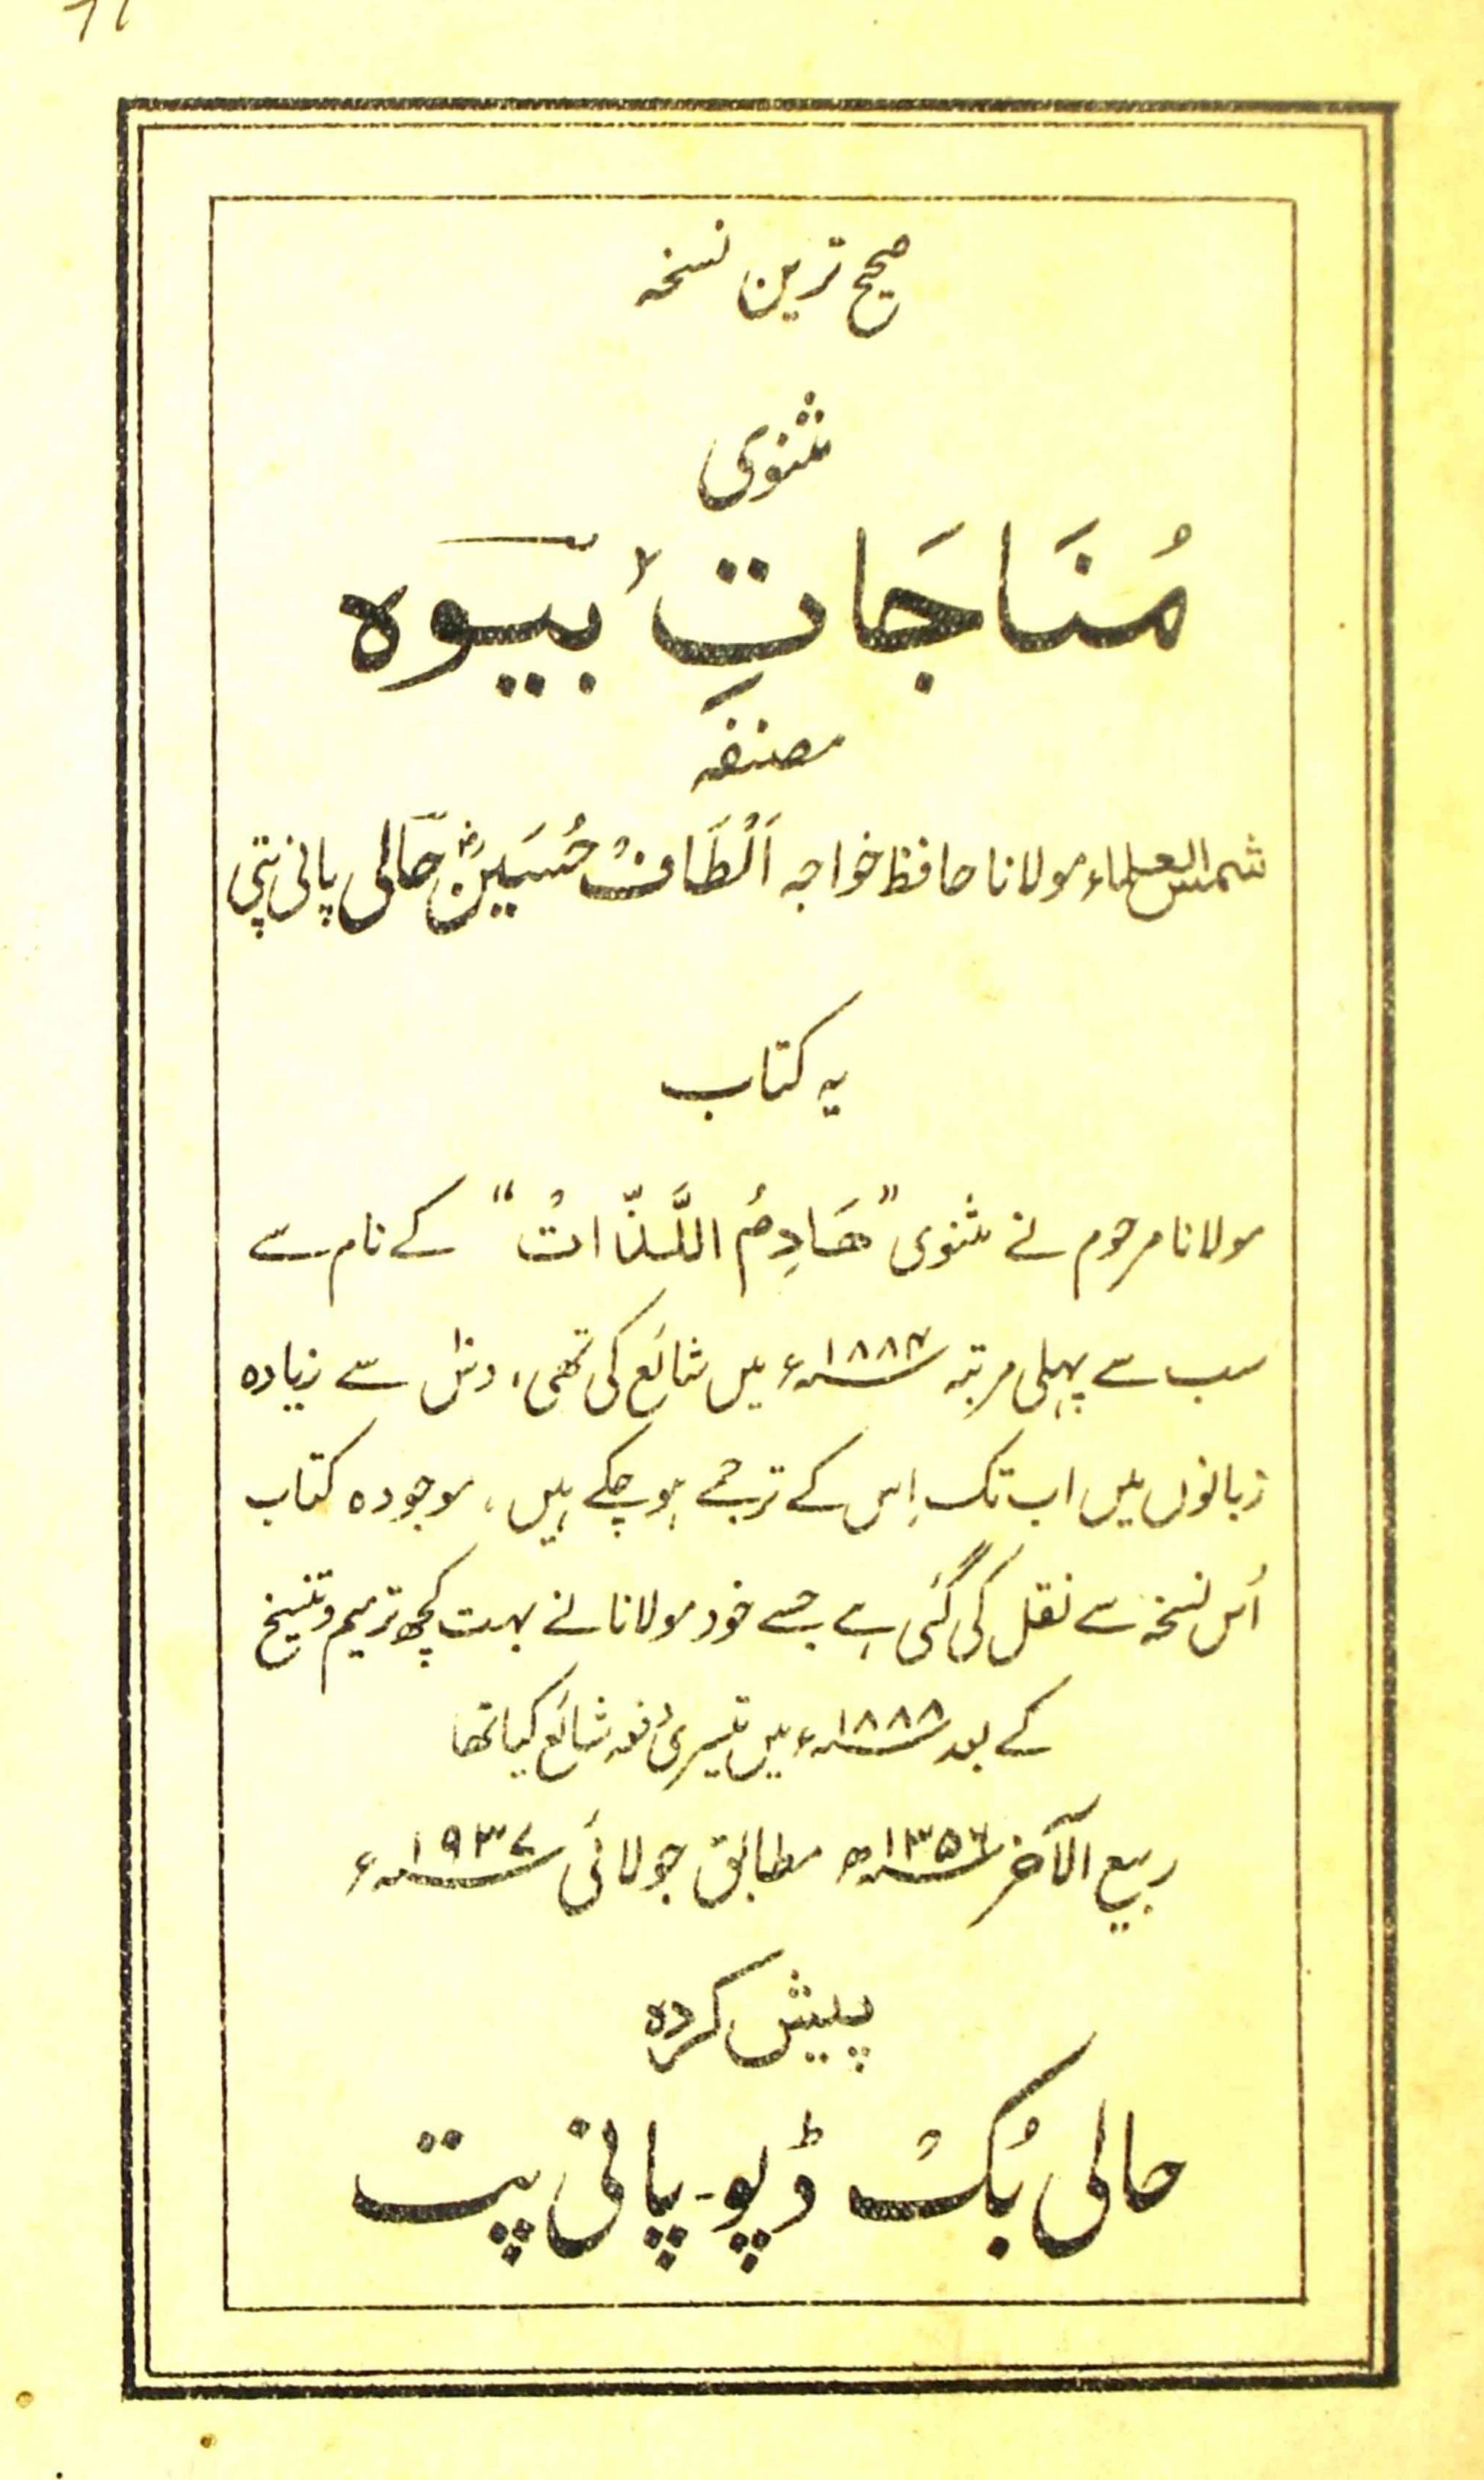 صحیح ترین نسخہ
مثنوی
مُنَاجَاتِ بیوَہ
مصنفہ
شمس العلماء مولانا حافظ خواجہ اَلْطَافْ حُسَیْن حَالی پانی پتی
یہ کتاب
مولانا مرحوم نے مثنوی "ھَادِمُ اللَّذّاتْ" کے نام سے
سب سے پہلی مرتبہ ۱۸۸۴ء میں شائع کی تھی، دس سے زیادہ
زبانوں میں اب تک اِس کے ترجمے ہو چکے ہیں، موجودہ کتاب
اُس نسخہ سے نقل کی گئی ہے جسے خود مولانا نے بہت کچھ ترمیم و تنسیخ
کے بعد ۱۸۸۸ء میں تیسری دفعہ شائع کیا تھا
ربیع الآخر ۱۳۵۶ھ مطابق جولائی ۱۹۳۷ء
پیش کردہ
حالی بُکْ ڈپو۔ پانی پت